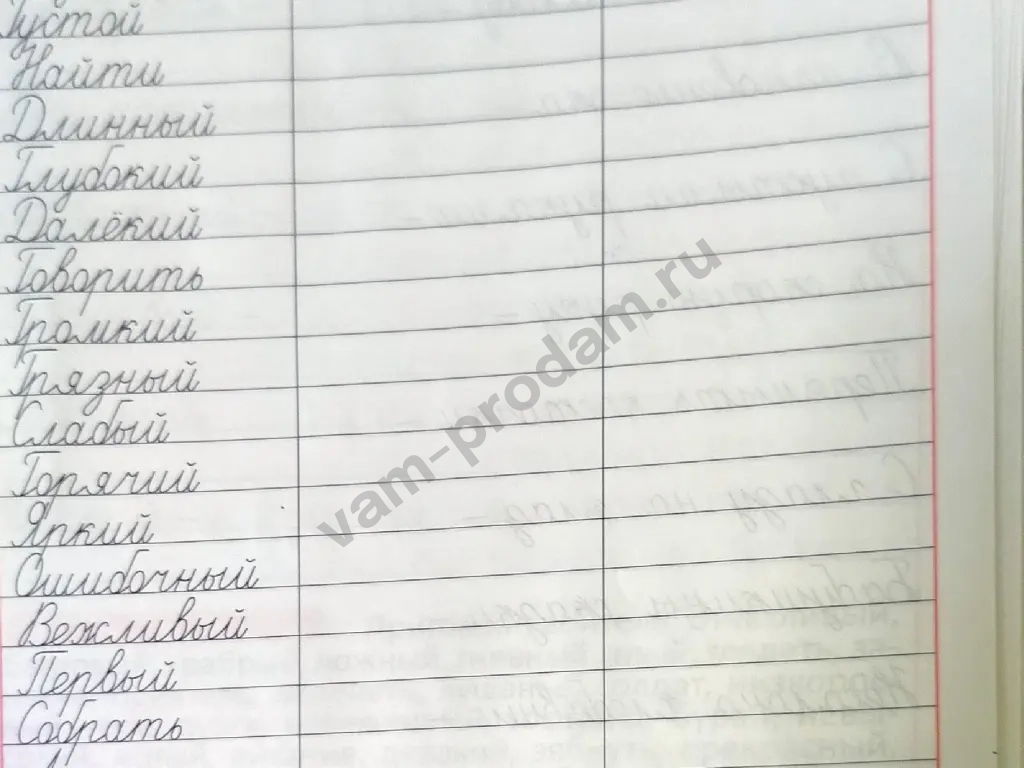 Густой
Найти
Длинный
Глубокий
Далёкий
Говорить
Громкий
Грязный
Слабый
Горячий
Яркий
Ошибочный
Вежливый
Первый
Собрать
vam-prodam.ru